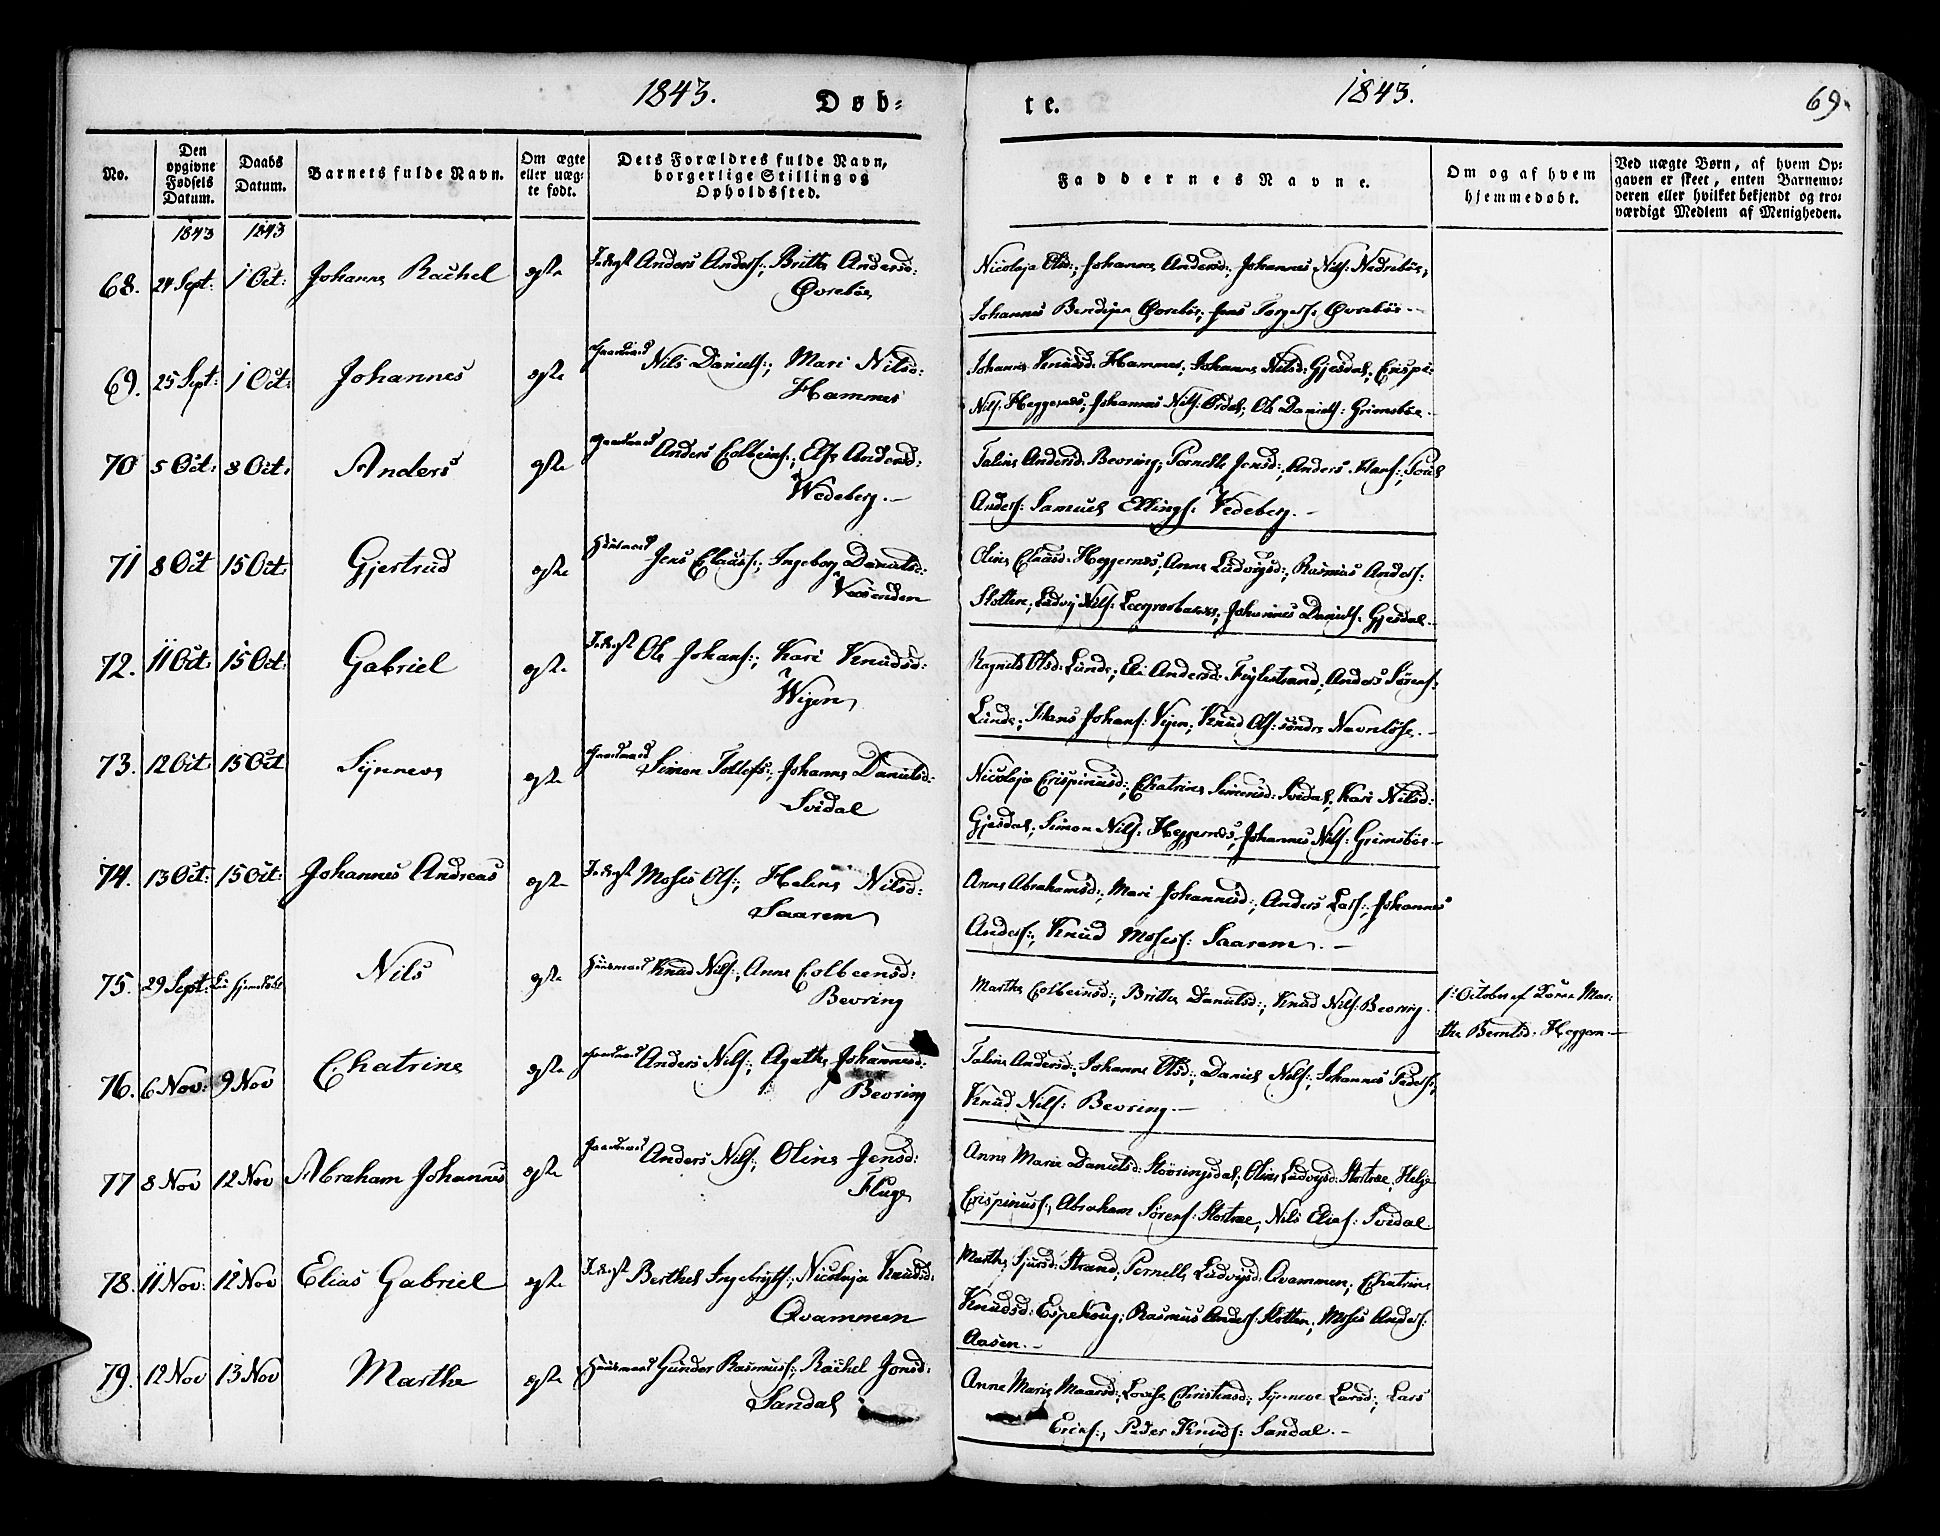 1843. Døb- te. 1843. 69.
No. Den opgivne Fødsels Datum. Daabs Datum. Barnets fulde Navn. Om ægte eller uægte født. Dets Forældres fulde Navn, borgerlige Stilling og Opholdssted. Faddernes Navne. Om og af hvem hjemmedøbt. Ved uægte Børn, af hvem Opgaven er skeet, enten Barnemoderen eller hvilket bekjendt og troværdigt Medlem af Menigheden.
1843 1843
68. 24 Sept: 1 Oct: Johanne Rachel egte Anders Anders:; Britte Andersd:
Øvrebøe
Nicoleja Olsd:; Johanne Andersd:; Johannes Nils: Nedrebøe;
Johannes Bendixen Øvrebøe; Jens Øvrebøe
69. 25 Sept: 1 Oct: Johannes egte Gaardmand Nils Daniels:; Mari Nilsd:
Hammer
Johanne Knudsd: Hammer; Johanne Nilsd: Gjesdal; Crispi:
Nils: Heggenes; Johannes Nils: Årdal; Ole Daniels: Grimsbøe.
70 5 Oct: 8 Oct: Anders egte Gaardmand Anders Colbeins:; Else Andersd:
Wedeberg.
Taline Andersd: Bevring; Pernelle Jensd:; Anders Hans:; Poul
Anders: Samuel Ellings: Vedeberg.
71 8 Oct 15 Oct: Gjertrud egte Huusmand Jens Clauss:; Ingeborg Danielsd:
Vasenden
Oline Claasd: Heggernes; Anne Ludvigsd:; Rasmus Anders:
Slotten; Ludvig Nils: Johannes Daniels: Gjesdal.
72. 11 Oct: 15 Oct: Gabriel egte Ole Johans:; Kari Knudsd:
Wigen
Ragnile Olsd: Lunde; Eli Andersd: Anders Sørens:
Lunde; Hans Johans: Vijen; Knud Ols: søndre Navnløse.
73. 12 Oct 15 Oct Synneve egte Gaardmand Simon Tollefs:; Johanne Danielsd:
Svidal
Nicoleja Crispinusd:; Chatrine Simonsd: Svidal; Kari Nilsd:
Gjesdal; Simon Nils: Heggernes; Johannes Nils: Grimsbøe
74. 13 Oct: 15 Oct: Johannes Andreas egte Moses Ols:; Helene Nilsd:
Saarem
Anne Abrahamsd:; Mari Johannesd:; Anders Lars:; Johannes
Anders:; Knud Moses: Saarem.
75. 29 Sept: Nils egte Huusmand Knud Nils:; Anne Colbeensd:
Bevring
Marthe Colbeinsd:; Britte Danielsd:; Knud Nils: Bevring.
1: October af Mar:
the Berntsd: Heggen
76. 6 Nov: 9 Nov Chatrine egte Gaardmand Anders Nils:; Agathe Johannesd:
Bevring
Taline Andersd:; Johanne Olsd:; Daniel Nils:; Johannes Peders:;
Knud Nils: Bevring.
77 8 Nov 12 Nov Abraham Johannes egte Gaardmand Anders Nils:; Oline Jensd:
Fluge
Anne Marie Danielsd: Støvringsdal; Oline Ludvigsd: Stortræe; Helge
Crispinuss:; Abraham Sørens: Stortræe; Nils Elias: Svidal
78. 11 Nov: 12 Nov Elias Gabriel egte Berthel Ingebrigts:; Nicoleja Knudsd:
Qvammen
Marthe Sjursd: Strand; Pernelle Ludvigsd: Qvammen; Chatrine
Knudsd: Espeskoug; Rasmus Anders: Slotten; Moses Anders:
Aasen.
79. 12 Nov 13 Nov Marthe egte Huusmand Gunder Rasmus:; Rachel Jonsd:
Sandal
Anne Marie Maarsd:; Lovise Christensd:; Synneve Larsd:; Lars
Erics:, Peder Knuds: Sandal.